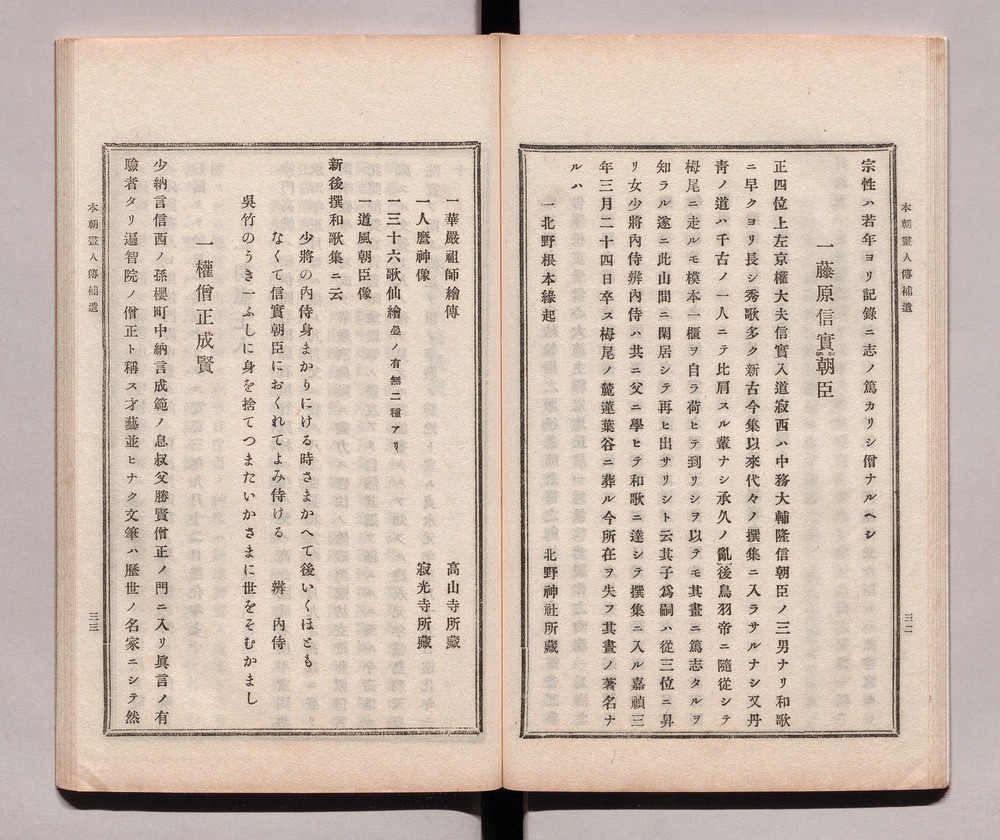 本朝畫人傳補遺
三二
宗性ハ若年ヨリ記錄ニ志ノ篤カリシ僧ナルヘシ
一藤原信實朝臣
正四位上左京權大夫信實入道寂西ハ中務大輔隆信朝臣ノ三男ナリ和歌
ニ早クヨリ長シ秀歌多ク新古今集以來代々ノ撰集ニ入ラサルナシ又丹
靑ノ道ハ千古ノ一人ニテ比肩スル輩ナシ承久ノ亂後鳥羽帝ニ隨從シテ
栂尾ニ走ルモ模本一櫃ヲ自ラ荷ヒテ到リシヲ以テモ其畫ニ篤志タルヲ
知ラル遂ニ此山間ニ閑居シテ再ヒ出サリシト云其子爲嗣ハ從三位ニ昇
リ女少將內侍辨內侍ハ共ニ父ニ學ヒテ和歌ニ達シテ撰集ニ入ル嘉禎三
年三月二十四日卒ス栂尾ノ麓蓮葉谷ニ葬ル今所在ヲ失フ其畫ノ著名ナ
ルハ
一北野根本緣起 北野神社所藏
一華嚴祖師繪傳 高山寺所藏
一人麿神像 寂光寺所藏
一三十六歌仙繪 ノ有無二種アリ
一道風朝臣像
新後撰和歌集ニ云
少將の內侍身まかりにける時さまかへて後いくほとも
なくて信實朝臣におくれてよみ侍ける 辨內侍
吳竹のうき一ふしに身を捨てつまたいかさまに世をそむかまし
一權僧正成賢
少納言信西ノ孫櫻町中納言成範ノ息叔父勝賢僧正ノ門ニ入リ眞言ノ有
驗者タリ遍智院ノ僧正ト稱ス才藝並ヒナク文筆ハ歷世ノ名家ニシテ然
本朝畫人傳補遺
三三